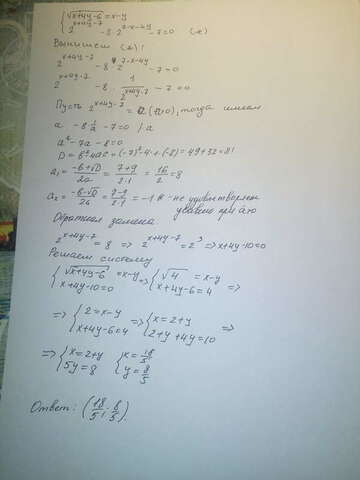 { √x+4y-6 = x-y
2^x+4y-7 - 8·2^7-x-4y - 7=0 (*)
Выпишем (*)!
2^x+4y-7 - 8·2^7-x-4y - 7=0
2^x+4y-7 - 8 · 1/2^x+4y-7 - 7=0
Пусть 2^x+4y-7 = a (a>0), тогда имеем
a - 8·1/a - 7=0 /·a
a² - 7a - 8=0
D = b²-4ac = (-7)²-4·1·(-8) = 49+32=81
a₁ = -b+√D/2a = 7+9/2·1 = 16/2 = 8
a₂ = -b-√D/2a = 7-9/2·1 = -1 - не удовлетворяет
условию при a>0
Обратная замена
2^x+4y-7 = 8 => 2^x+4y-7 = 2^3 => x+4y-10=0
Решаем систему
{ √x+4y-6 = x-y => { √4 = x-y
x+4y-10=0 x+4y-6=4 =>
=> { 2=x-y => { x=2+y
x+4y-6=4 2+y+4y=10 =>
=> { x=2+y { x=18/5
5y=8 y=8/5
Ответ: (18/5; 8/5).